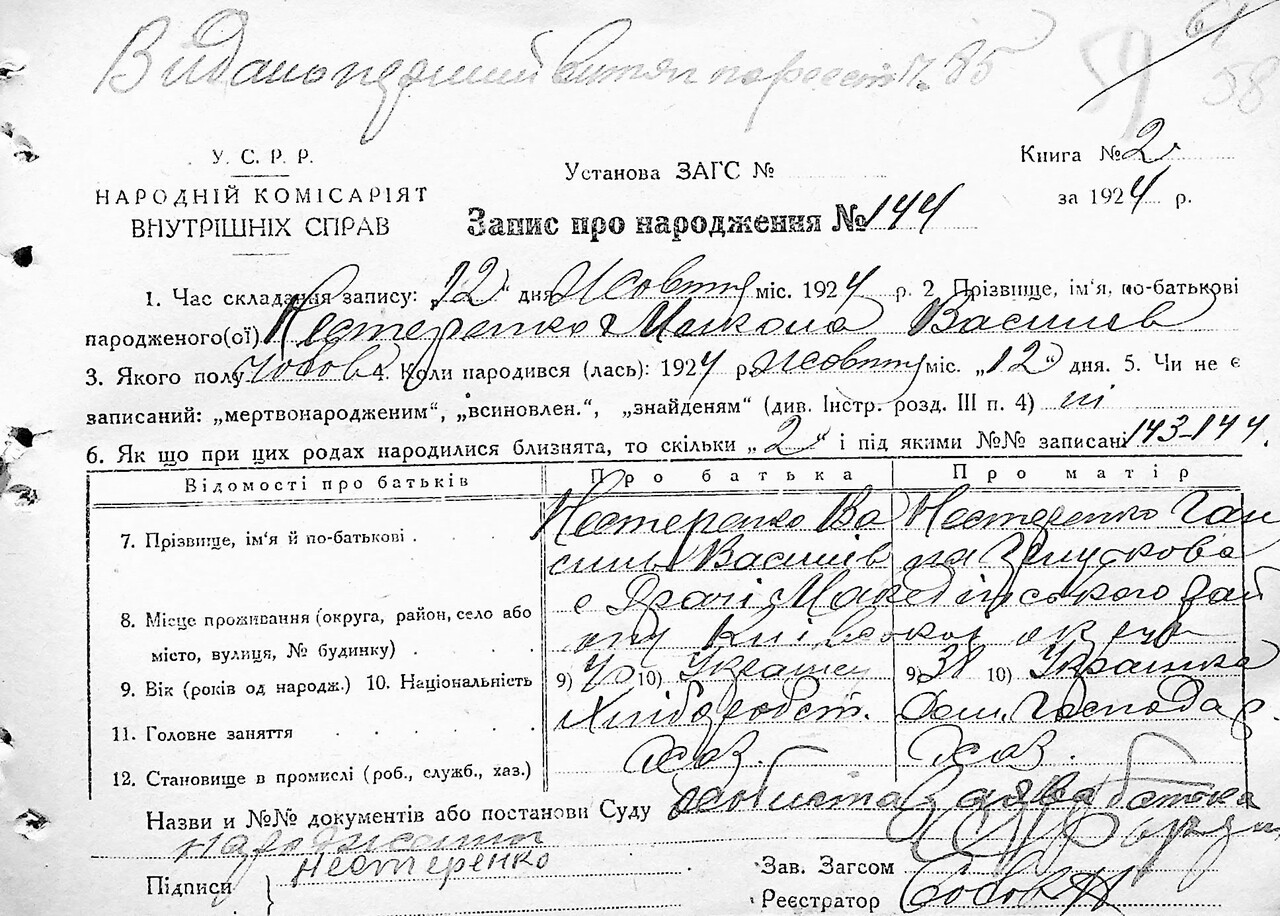 Видано перший витяг по реєст. № 85
59
61
58
У. С. Р. Р.
НАРОДНІЙ КОМІСАРІЯТ
ВНУТРІШНІХ СПРАВ
Установа ЗАГС №
Книга № 2
за 1924 р.
Запис про народження № 144
1. Час складання запису: „12“ дня Жовтня міс. 1924 р. 2 Прізвище, ім'я, по-батькові
народженого(ої) Нестеренко Микола Васильев
3. Якого полу Чолов. 4. Коли народився (лась): 1924 р. жовтня міс. „12“ дня. 5. Чи не є
записаний: „мертвонародженим“, „всиновлен.“, „знайденям“ (див. Інстр. розд. III п. 4) ні
6. Як що при цих родах народилися близнята, то скільки „2“ і під якими №№ записані 143-144.
Відомості про батьків Про батька Про матір
7. Прізвище, ім'я й по-батькові
Нестеренко Ва
силь Василів
Нестеренко Ган
на
8. Місце проживання (округа, район, село або
місто, вулиця, № будинку)
с Драчі Макегонського рай
ону Київської округи
9. Вік (років од народж.) 10. Національність 9) 40 10) Украинец 9) 38 10) Украинка
11. Головне заняття Хліборобст. Дом. Господар.
12. Становище в промислі (роб., служб., хаз.) хаз. хаз.
Назви и №№ документів або постанови Суду особиста заява батька
народженого
Підписи Нестеренко
Зав. Загсом
Реєстратор